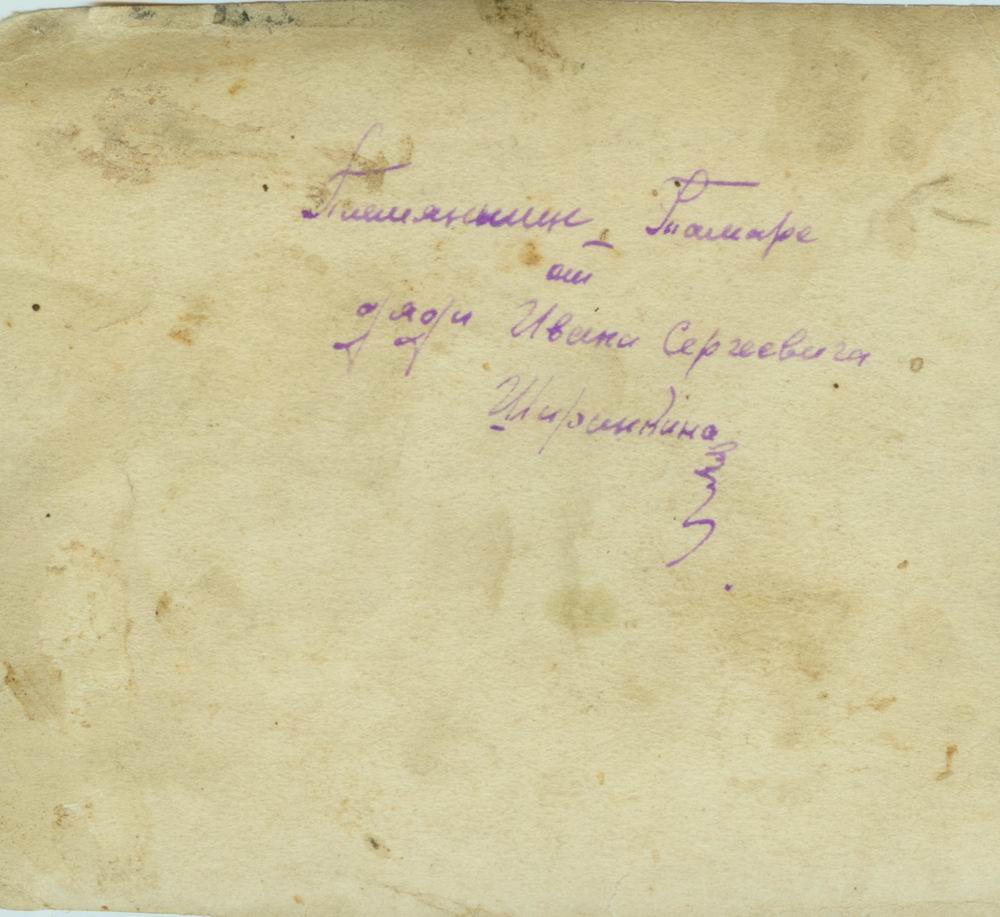 Племяннице Тамаре
от
дяди Ивана Сергеевича
Ширинкина